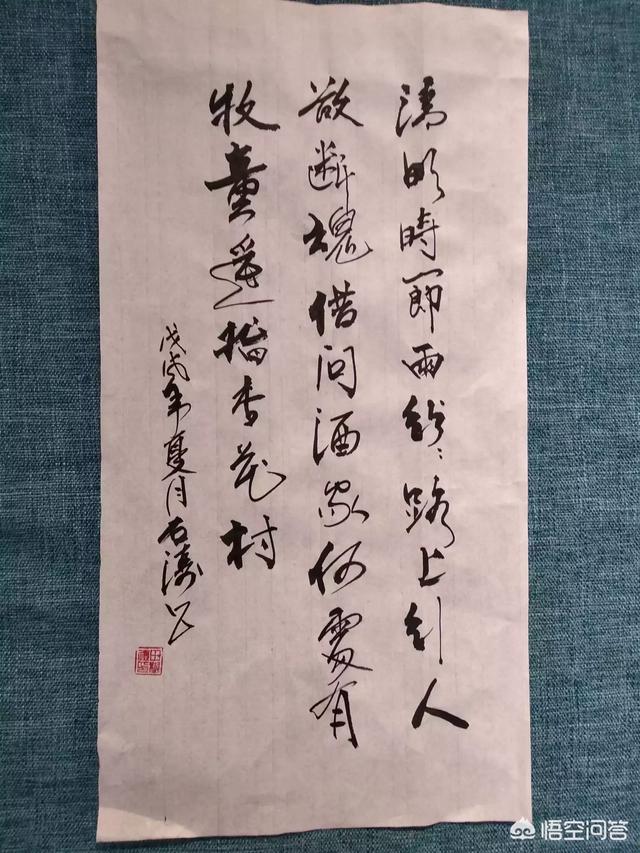 清明時節雨紛〻路上行人
欲斷魂借問酒家何處有
牧童遥指杏花村
戊戌年夏月石涛
悟空问答